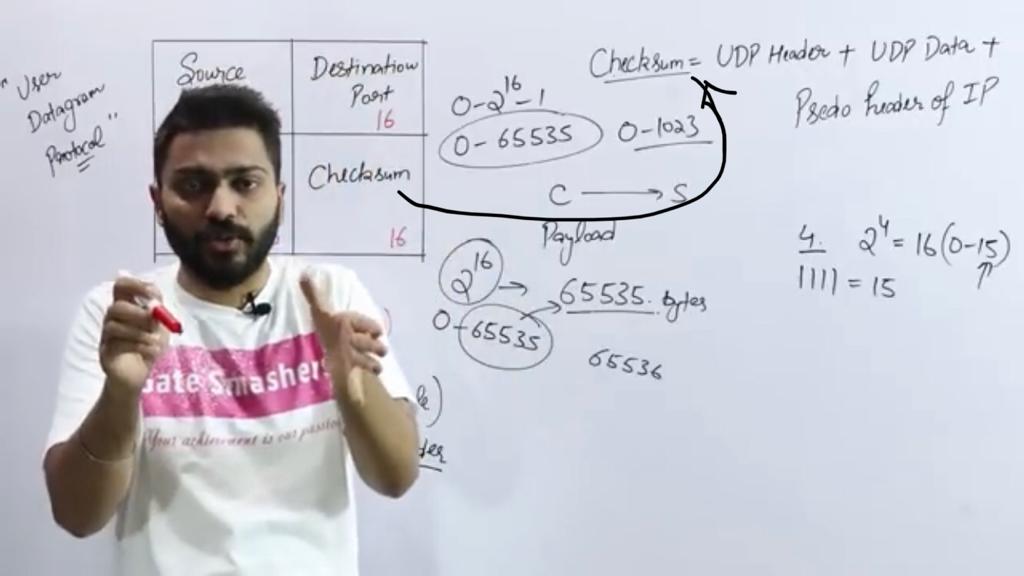 "User
Datagram
Protocol"
Source
Destination
Port
16
Checksum
16
0-2^16-1
0-65535
0-1023
C → S
Payload
2^16 → 65535. bytes
0-65535
65536
Checksum = UDP Header + UDP Data +
Psedo header of IP
4. 2^4 = 16(0-15)
1111 = 15
Gate Smashers
Your achievement is our passion